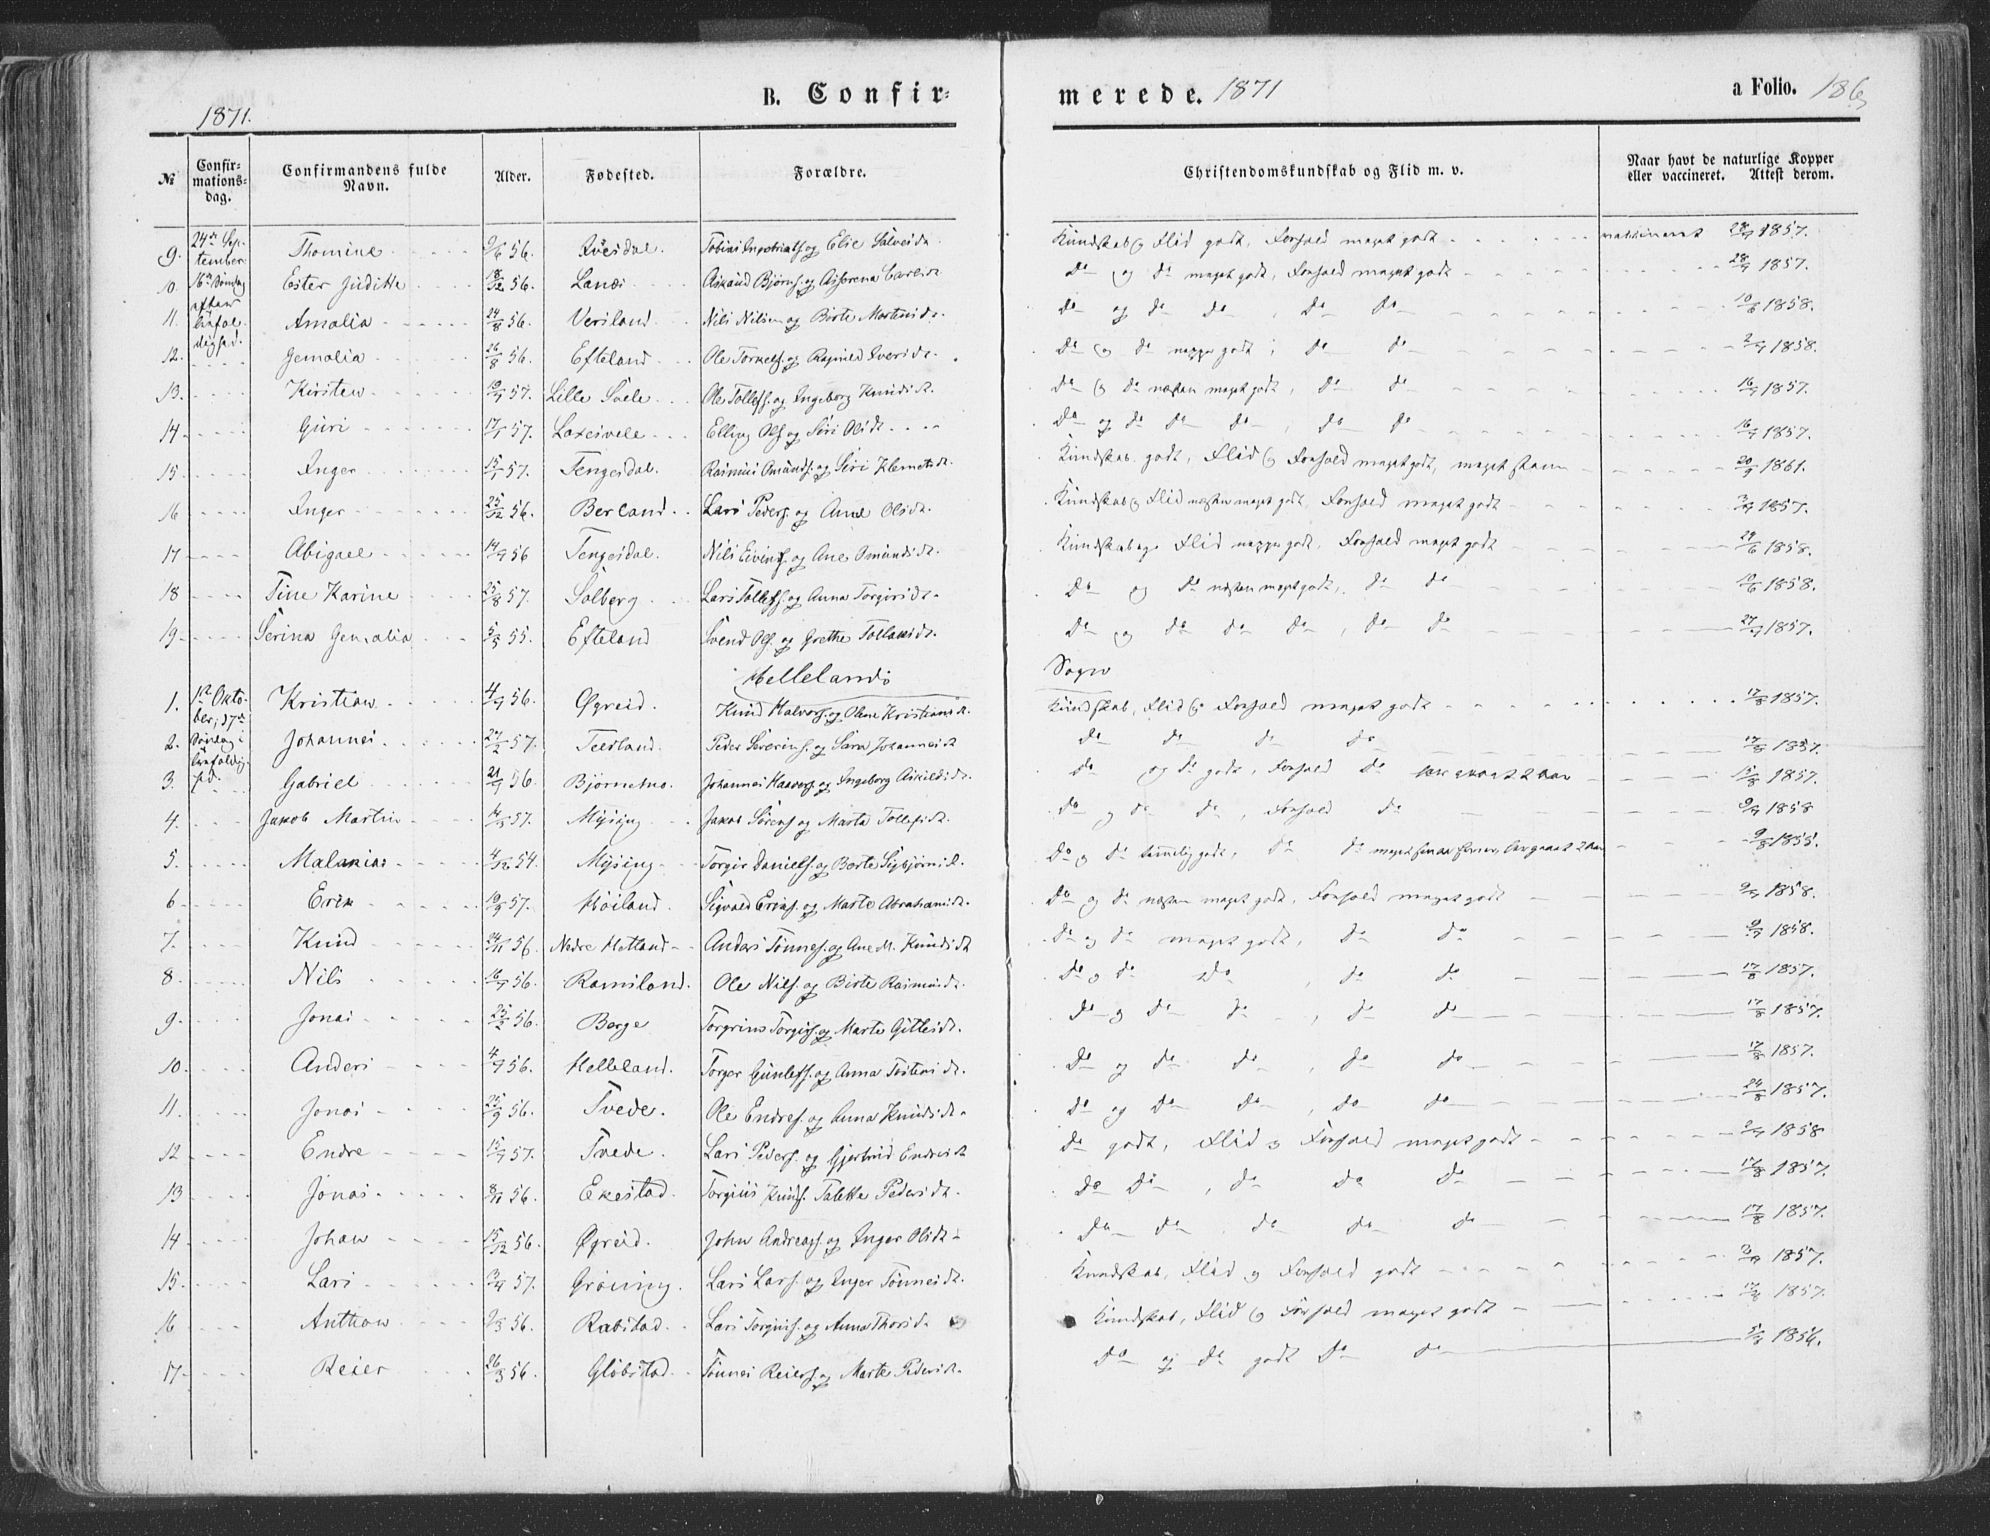 B. Confir= merede. 1871 a Folio. 186
1871.
№ Confir=mations=dag. Confirmandens fulde Navn. Alder. Fødested. Forældre. Christendomskundskab og Flid m. v. Naar havt de naturlige Kopper eller vaccineret. Attest derom.
9. 24de September Thomine 56. Elie Kundskab og Flid godt, Forhold meget godt vaccineret 1857.
10. 16de Søndag Ester Juditte 18/12 56. Do og do meget godt, Forhold meget godt 28/7 1857.
11. efter Amalia 24/8 56. Nils Nilsen og Birte Do og do do, do do 10/6 1858.
12. Gemalia 26/8 56. Efteland Ole Torkels. og Ragnild Do og do godt, do do 1858.
13. Kirsten 57. Lille Svele Ole Tollefs. og Ingeborg Knudsdt. Do og do næsten meget godt, do do 16/7 1857.
14 Guri 17/1 57. Elling Ols. og Siri Olsdt. Do og do do do, do do 16/7 1857.
15. Inger 15/1 57. Tengesdal. Rasmus Omunds. og Siri Klemetsdt. Kundskab godt, Flid og Forhold meget godt, meget 20/9 1861.
16 Inger 25/12 56. Berland. Lars Peders. og Anne Olsdt. Kundskab og Flid næsten meget godt, Forhold meget godt 1857.
17 Abigael 14/7 56 Tengesdal. Nils Eivins. og Ane Omundsdt. Kundskab og Flid godt, Forhold meget godt 29/6 1858.
18 Tine Karine 25/8 57. Solberg Lars Tollefs. og Anna Torgersdt. Do og do næsten meget godt, do do 1858.
19. Serina Gemalia 5/5 55. Efteland Svend Ols. og Grethe Tollaksdt. Do og do do do, do do 1857.
Hellelands Sogn
1. 1ste Okto- Kristian 4/9 56. Øgreid. Knud Halvors. og Olene Kristiansdt. Kundskab, Flid og Forhold meget godt 17/8 1857.
2. ber, 17de Søndag i Johannes 57. Teesland. Peder Severins. og Sara Johannesdt Do do do do 17/8 1857.
3. Gabriel 21/9 56. Bjørnemo. Johannes Haavors. og Ingeborg Askildsdt. Do og do godt, Forhold do 2 Aar 15/8 1857.
4. Jakob Martin 57. Mysing Jakob Sørens. og Marta Tollefsdt. Do og do do, Forhold do 1858
5. Malakias 4/12 54. Mysing Torger Daniels. og Berte Sigbjørnsdt. Do og do temmelig godt, do do 2 Aar 9/8 1855.
6 Erik 10/9 57. Høiland. Sigvald Eriks. og Marte Abrahamsdt. Do og do næsten meget godt, Forhold meget godt 1858.
7. Knud 24/11 56. Nedre Hetland Anders Tønnes. og Ane M. Knudsdt Do og do meget godt, do do 1858.
8. Nils 16/9 56. Ramsland. Ole Nils. og Birte Rasmusdt. Do og do do, do do 17/8 1857.
9. Jonas 56. Berge Torgrim Torgers. og Marte Gitlesdt. Do og do do, do do 17/8 1857.
10. Anders 4/9 56. Helleland. Torger Gunlefs. og Anna Do og do do, do do 17/8 1857.
11. Jonas 25/9 56. Tvede. Ole Endres. og Anna Knudsdt. Do og do do, do do 24/8 1857.
12 Endre 15/7 57. Tvede. Lars Peders. og Gjertrud Endresdt Do godt, Flid og Forhold meget godt 1858
13 Jonas 8/11 56. Ekestad. Torgius Knuds. Talette Pedersdt. Do do, do do do 17/8 1857.
14 Johan 15/12 56. Øgreid. John Andreas. og Inger Olsdt Do do do do do 17/8 1857.
15. Lars 57. Grøning. Lars Lars. og Inger Tønnesdt. Kundskab, Flid og Forhold godt 1857.
16 Anthon 56. Rabstad. Lars Torgius. og Anna Kundskab, Flid og Forhold meget godt 17/8 1857.
17 Reier 26/3 56. Gløbstad. Tønnes Reiers. og Marte Pedersdt. Do og do godt do do 1856.